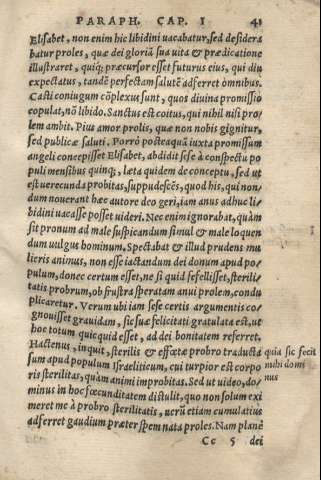 PARAPH. CAP. I 41
Elisabet, non enim hic libidini uacabatur, sed desidera
batur proles, quæ dei gloriã sua uita & prædicatione
illustraret, quiq; præcursor esset futurus eius, qui diu
expectatus, tandẽ perfectam salutẽ adferret omnibus.
Casti coniugum cõplexus sunt, quos diuina promissio
copulat, nõ libido. Sanctus est coitus, qui nihil nisi pro
lem ambit. Pius amor prolis, quæ non nobis gignitur,
sed publicæ saluti. Porrò posteaquã iuxta promissum
angeli concepisset Elisabet, abdidit sese à conspectu po
puli mensibus quinq;, læta quidem de conceptu, sed ut
est uerecunda probitas, suppudescẽs, quod his, qui non
dum nouerant hæc autore deo geri, iam anus adhuc li
bidini uacasse posset uideri. Nec enim ignorabat, quàm
sit pronum ad male suspicandum simul & male loquen
dum uulgus hominum. Spectabat & illud prudens mu
lieris animus, non esse iactandum dei donum apud po
pulum, donec certum esset, ne si quid fefellisset, sterili
tatis probrum, ob frustra speratam anui prolem, condu
plicaretur. Verum ubi iam sese certis argumentis co
gnouisset grauidam, sic suæ felicitati gratulata est, ut
hoc totum quicquid esset, ad dei bonitatem referret.
Hactenus, inquit, sterilis & effœtæ probro traducta
sum apud populum Israëliticum, cui turpior est corpo
ris sterilitas, quàm animi improbitas. Sed ut uideo, do
minus in hoc fœcunditatem distulit, quo non solum exi
meret me à probro sterilitatis, uerũ etiam cumulatius
adferret gaudium præter spem nata proles. Nam planè
Cc 5 dei
quia sic fecit
mihi domi
nus